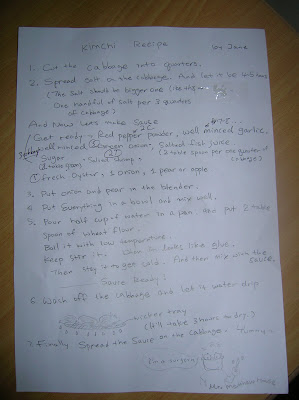 Kimchi Recipe by Jane
1. Cut the cabbage into quarters.
2. Spread salt on the cabbage. And let it be 4-5 hours
(The salt should be bigger one (like this)
One handful of salt per 3 quarters
of cabbage)
And Now Let's make Sauce
/ Get ready - Red pepper powder, well minced garlic.
2C
well minced green onion, Salted fish juice.
Sugar (2 table spoon per one quarter of
Salted shrimp cabbage)
fresh Oyster, 1 onion, 1 pear or apple
3. Put onion and pear in the blender.
4. Put Everything in a bowl and mix well,
5. Pour half cup of water in a pan. also put 2 table
spoon of wheat flour.
Boil it with low temperature.
Keep stir it. looks like glue.
Then stay it to get cold. And then mix with the
sauce.
Sauce Ready!
6. Wash off the cabbage and let it water drip
wicker tray
(It'll take 3 hours to dry.)
7. Finally Spread the Sauce on the cabbage. Yummy~